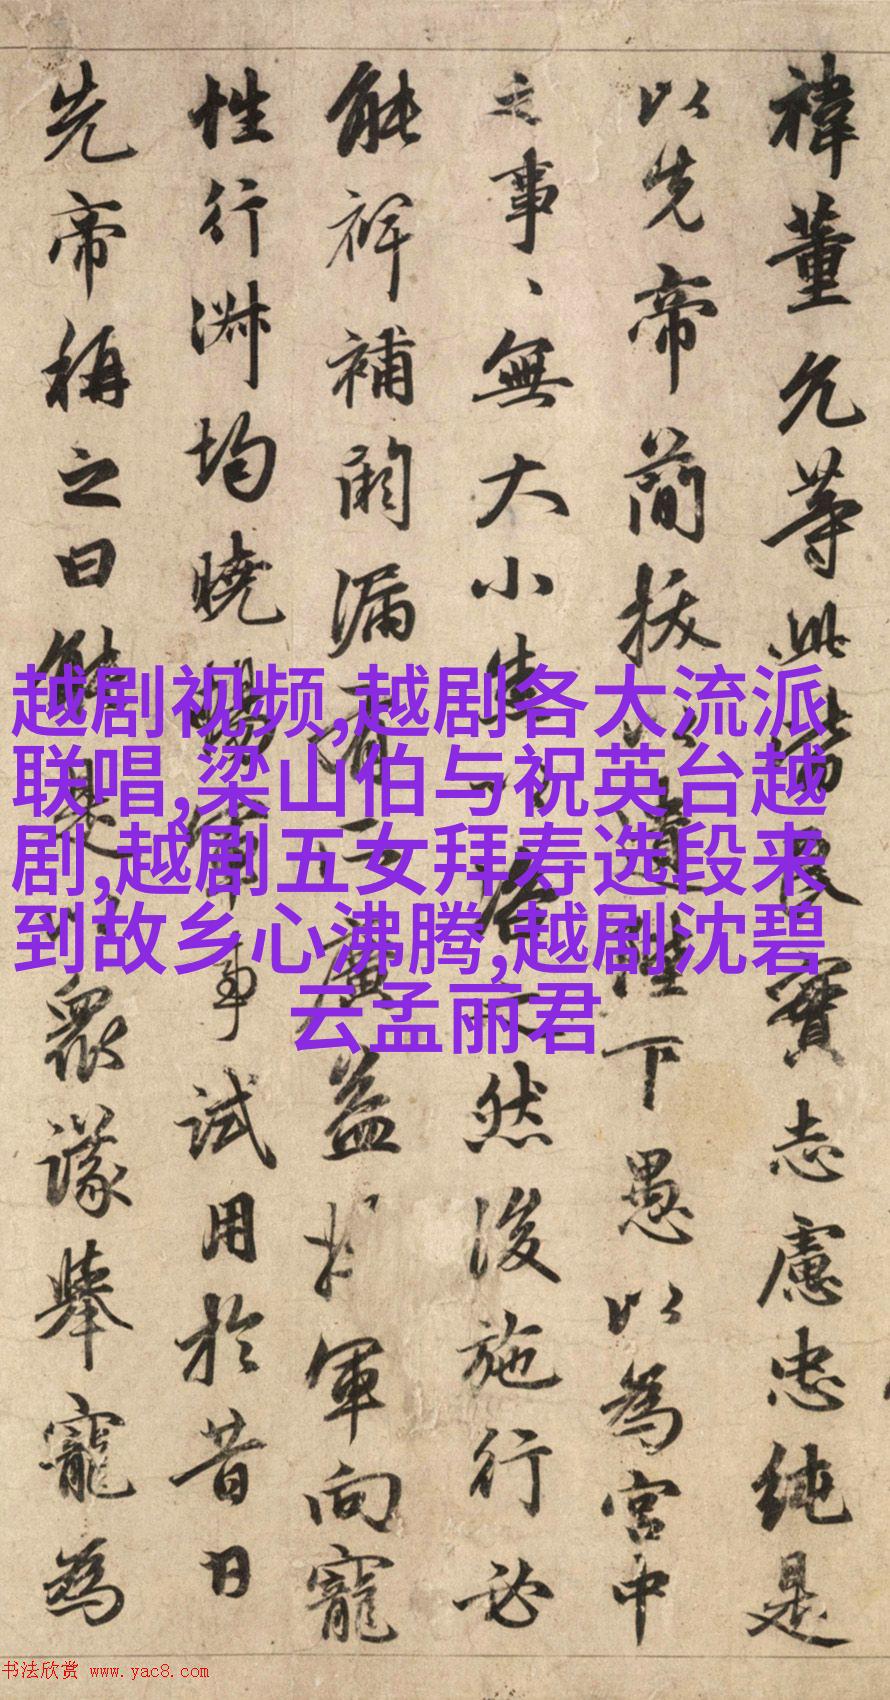 禕董允等此皆良實志慮忠純是
以先帝簡拔以遺陛下愚以為宮中
之事、無大小悉以咨之然後施行必
能裨補闕漏有所廣益將軍向寵
性行淋均曉暢軍事試用於昔日
先帝稱之曰能是以眾議舉寵為
越剧视频,越剧各大流派
联唱,梁山伯与祝英台越
剧,越剧五女拜寿选段来
到故乡心沸腾,越剧沈碧
云孟丽君
书法欣赏 www.yac8.com